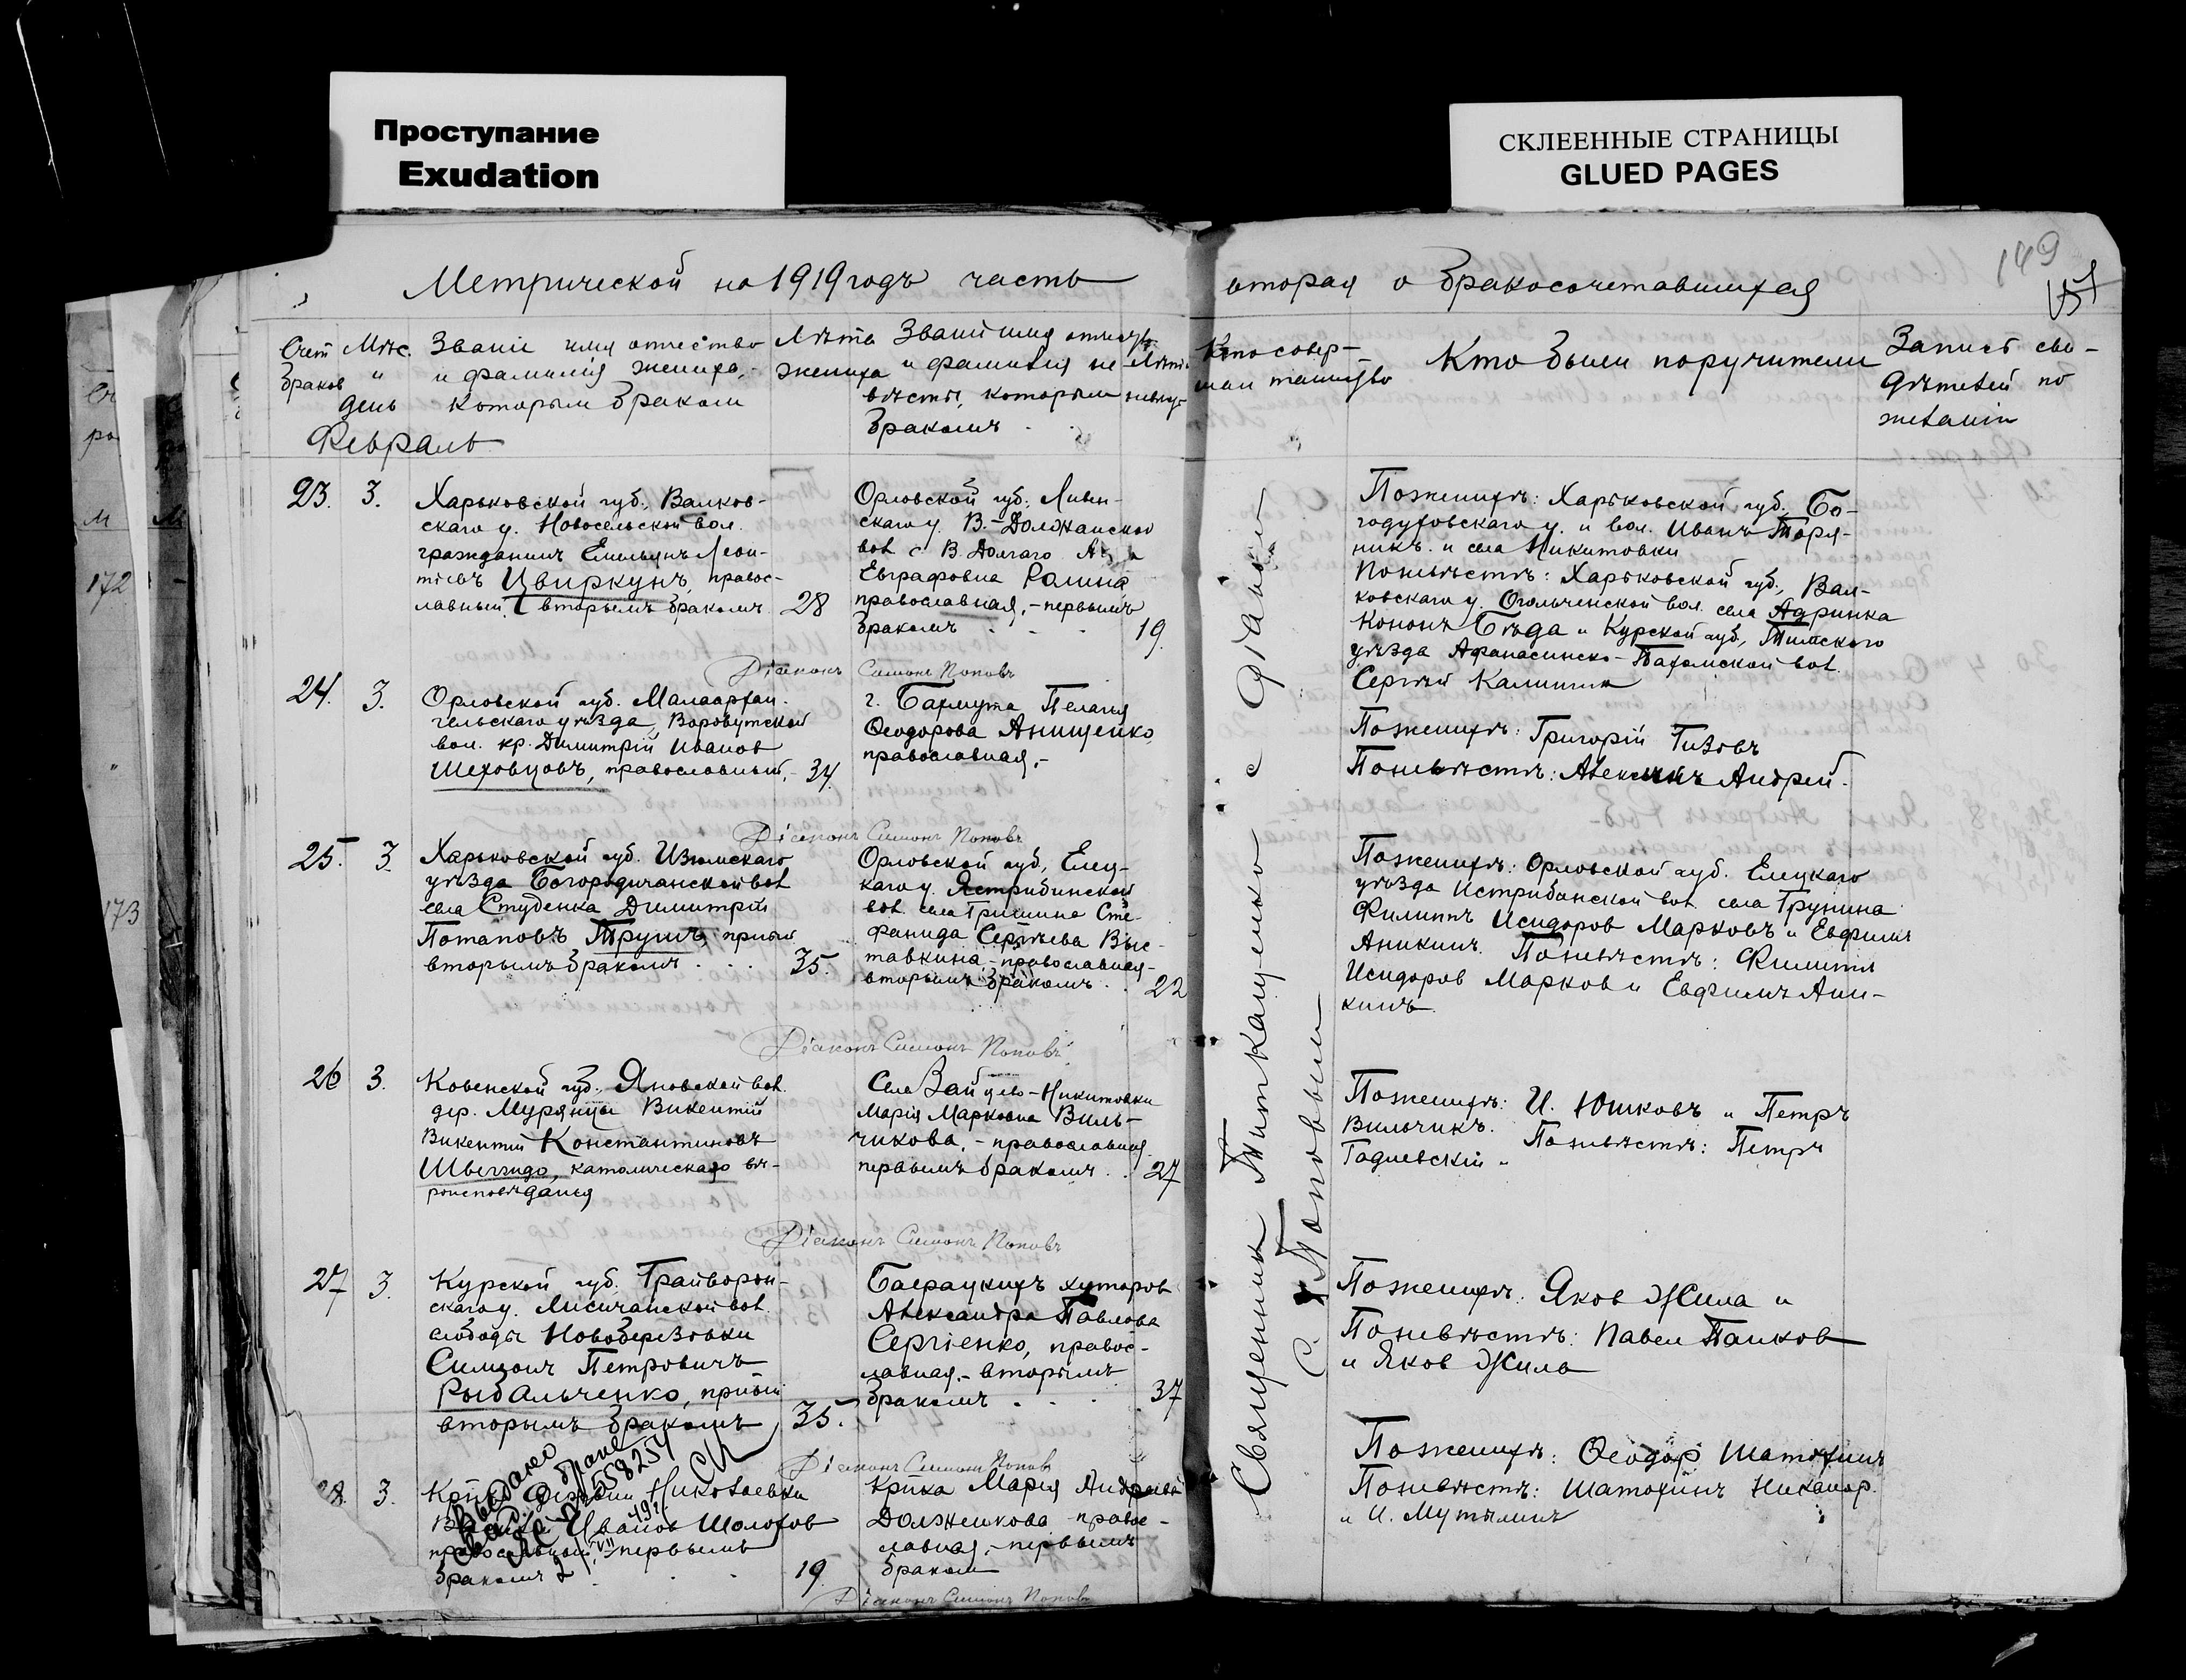 Проступание
Exudation
СКЛЕЕННЫЕ СТРАНИЦЫ
GLUED PAGES
Метрической на 1919 годъ часть
вторая о бракосочетавшихся
149
Счет браков
Мѣс. и день
Званіе имя отчество
и фамилія жениха,
которым браком
Лѣта
жениха
Званіе имя отчество
и фамилия не-
вѣсты, которым
браком
Лѣта
Кто совер-
шал таинство
Кто были поручители
Запись сви-
дѣтелей по
желанію
Февраль
23. 3.
Харьковской губ., Валков-
скаго у. Новосельской вол.
гражданинъ Емельянъ Леон-
тіевъ Цвиркунъ, правос-
лавный, вторымъ бракомъ
28
Орловской губ., Ливен-
скаго у. В.-Должанской
вол. с. В. Долгаго
Евграфовна Ралина
православная, - первымъ
бракомъ
19.
По женихѣ: Харьковской губ. Бо-
годуховскаго у. и вол. Иванъ
и села Никитовки
По невѣстѣ: Харьковской губ., Вал-
ковскаго у. Огольченской вол. села Адринка
Кононъ Бѣда и Курской губ., Тимскаго
уѣзда Афанасинско-Пахомской вол.
Сергѣй Калинин
Діаконъ Симонъ Поповъ
24. 3.
Орловской губ. Малоархан-
гельскаго уѣзда,
вол. кр. Димитрій Иванов
Шеховцовъ, православный, -
34.
г. Бахмута Пелагія
Феодорова Анищенко,
православная, -
По женихѣ: Григорій Гизовъ
По невѣстѣ: Андрей.
Діаконъ Симонъ Поповъ
25. 3.
Харьковской губ. Изюмскаго
уѣзда Богородичанской вол
села Студенка Димитрій
Потаповъ
вторымъ бракомъ
35.
Орловской губ., Елец-
каго у. Ястрибинской
вол. села Гришина Сте-
фанида Сергѣева Выс-
тавкина - православная -
вторымъ бракомъ
22
По женихѣ: Орловской губ. Елецкаго
уѣзда Истрибинской вол. села Грунина
Филиппъ Исидоров Марковъ и Евфимъ
Аникинъ. По невѣстѣ: Филиппъ
Исидоров Марков и Евфимъ Ани-
кинъ.
Діаконъ Симонъ Поповъ
26 3.
Ковенской губ. Яновской вол.
дер. Мурянцы Викентій
Викентій Константиновъ
католическаго вѣ-
роисповѣданія
Села Зайцево-Никитовки
Марія Марковна Виль-
чикова, - православная
первымъ бракомъ
27
По женихѣ: И. Юшковъ и Петръ
Вильчикъ. По невѣстѣ: Петръ
Гадлевскій
Діаконъ Симонъ Поповъ
27 3.
Курской губ. Грайворон-
скаго у. Лисичанской вол.
слободы Новоберезовки
Симеонъ Петровичъ
Рыбальченко,
вторымъ бракомъ
35.
хуторов
Александра Павлова
Сергіенко, правос-
лавная, - вторымъ
бракомъ
37
По женихѣ: Яков Жила и
По невѣстѣ: Павел Панков
и Яков Жила
Діаконъ Симонъ Поповъ
28. 3.
Николаевки
Иванов Шолохов
православный, первымъ
бракомъ
19
Кр-ка Марія Андреева
Должикова правос-
лавная, - первымъ
браком
По женихѣ: Феодор Шатохинъ
По невѣстѣ: Шатохинъ Никанор.
и И. Мутылинъ
Діаконъ Симонъ Поповъ
Выдано
о браке
558254
Священник Титкащенко с Діаконом
С. Поповым
172
173